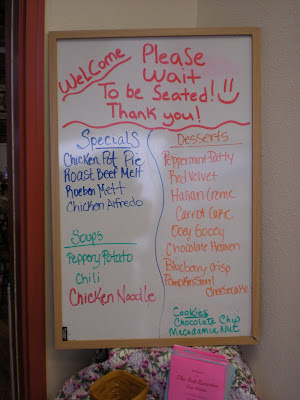 Welcome
Please
Wait
To be Seated!
Thank you!
Specials
Chicken Pot Pie
Roast Beef Melt
Rueben Melt
Chicken Alfredo
Soups
Peppery Potato
Chili
Chicken Noodle
Desserts
Peppermint Patty
Red Velvet
Italian Creme
Carrot Cake
Ooey Gooey
Chocolate Heaven
Blueberry Crisp
Pumpkin Swirl
Cheesecake
Cookies
Chocolate Chip
Macadamia Nut
The Red Geranium